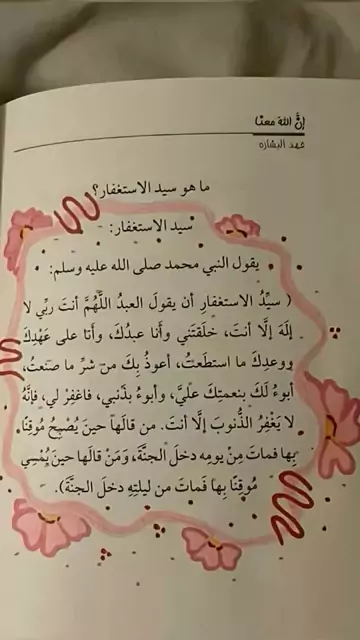 إنَّ اللهَ معنا
فهد البشاره
ما هو سيد الاستغفار؟
سيد الاستغفار:
يقول النبي محمد صلى الله عليه وسلم:
( سيِّدُ الاستغفارِ أن يقولَ العبدُ اللَّهُمَّ أنتَ ربِّي لا
إلَهَ إلَّا أنتَ، خلَقتَني وأنا عبدُكَ، وأَنا على عَهْدِكَ
ووعدِكَ ما استطَعتُ، أعوذُ بِكَ من شرِّ ما صنَعتُ،
أبوءُ لَكَ بنعمتِكَ عليَّ، وأبوءُ بذَنبي، فاغفِرْ لي، فإنَّهُ
لا يَغْفِرُ الذُّنوبَ إلَّا أنتَ. من قالَها حينَ يُصْبِحُ مُوقِنًا
بِها فماتَ مِنْ يومِه دخلَ الجنَّةَ، وَمَنْ قالَها حينَ يُمْسِي
مُوقِنًا بِها فَماتَ من ليلتِهِ دخلَ الجنَّةَ).